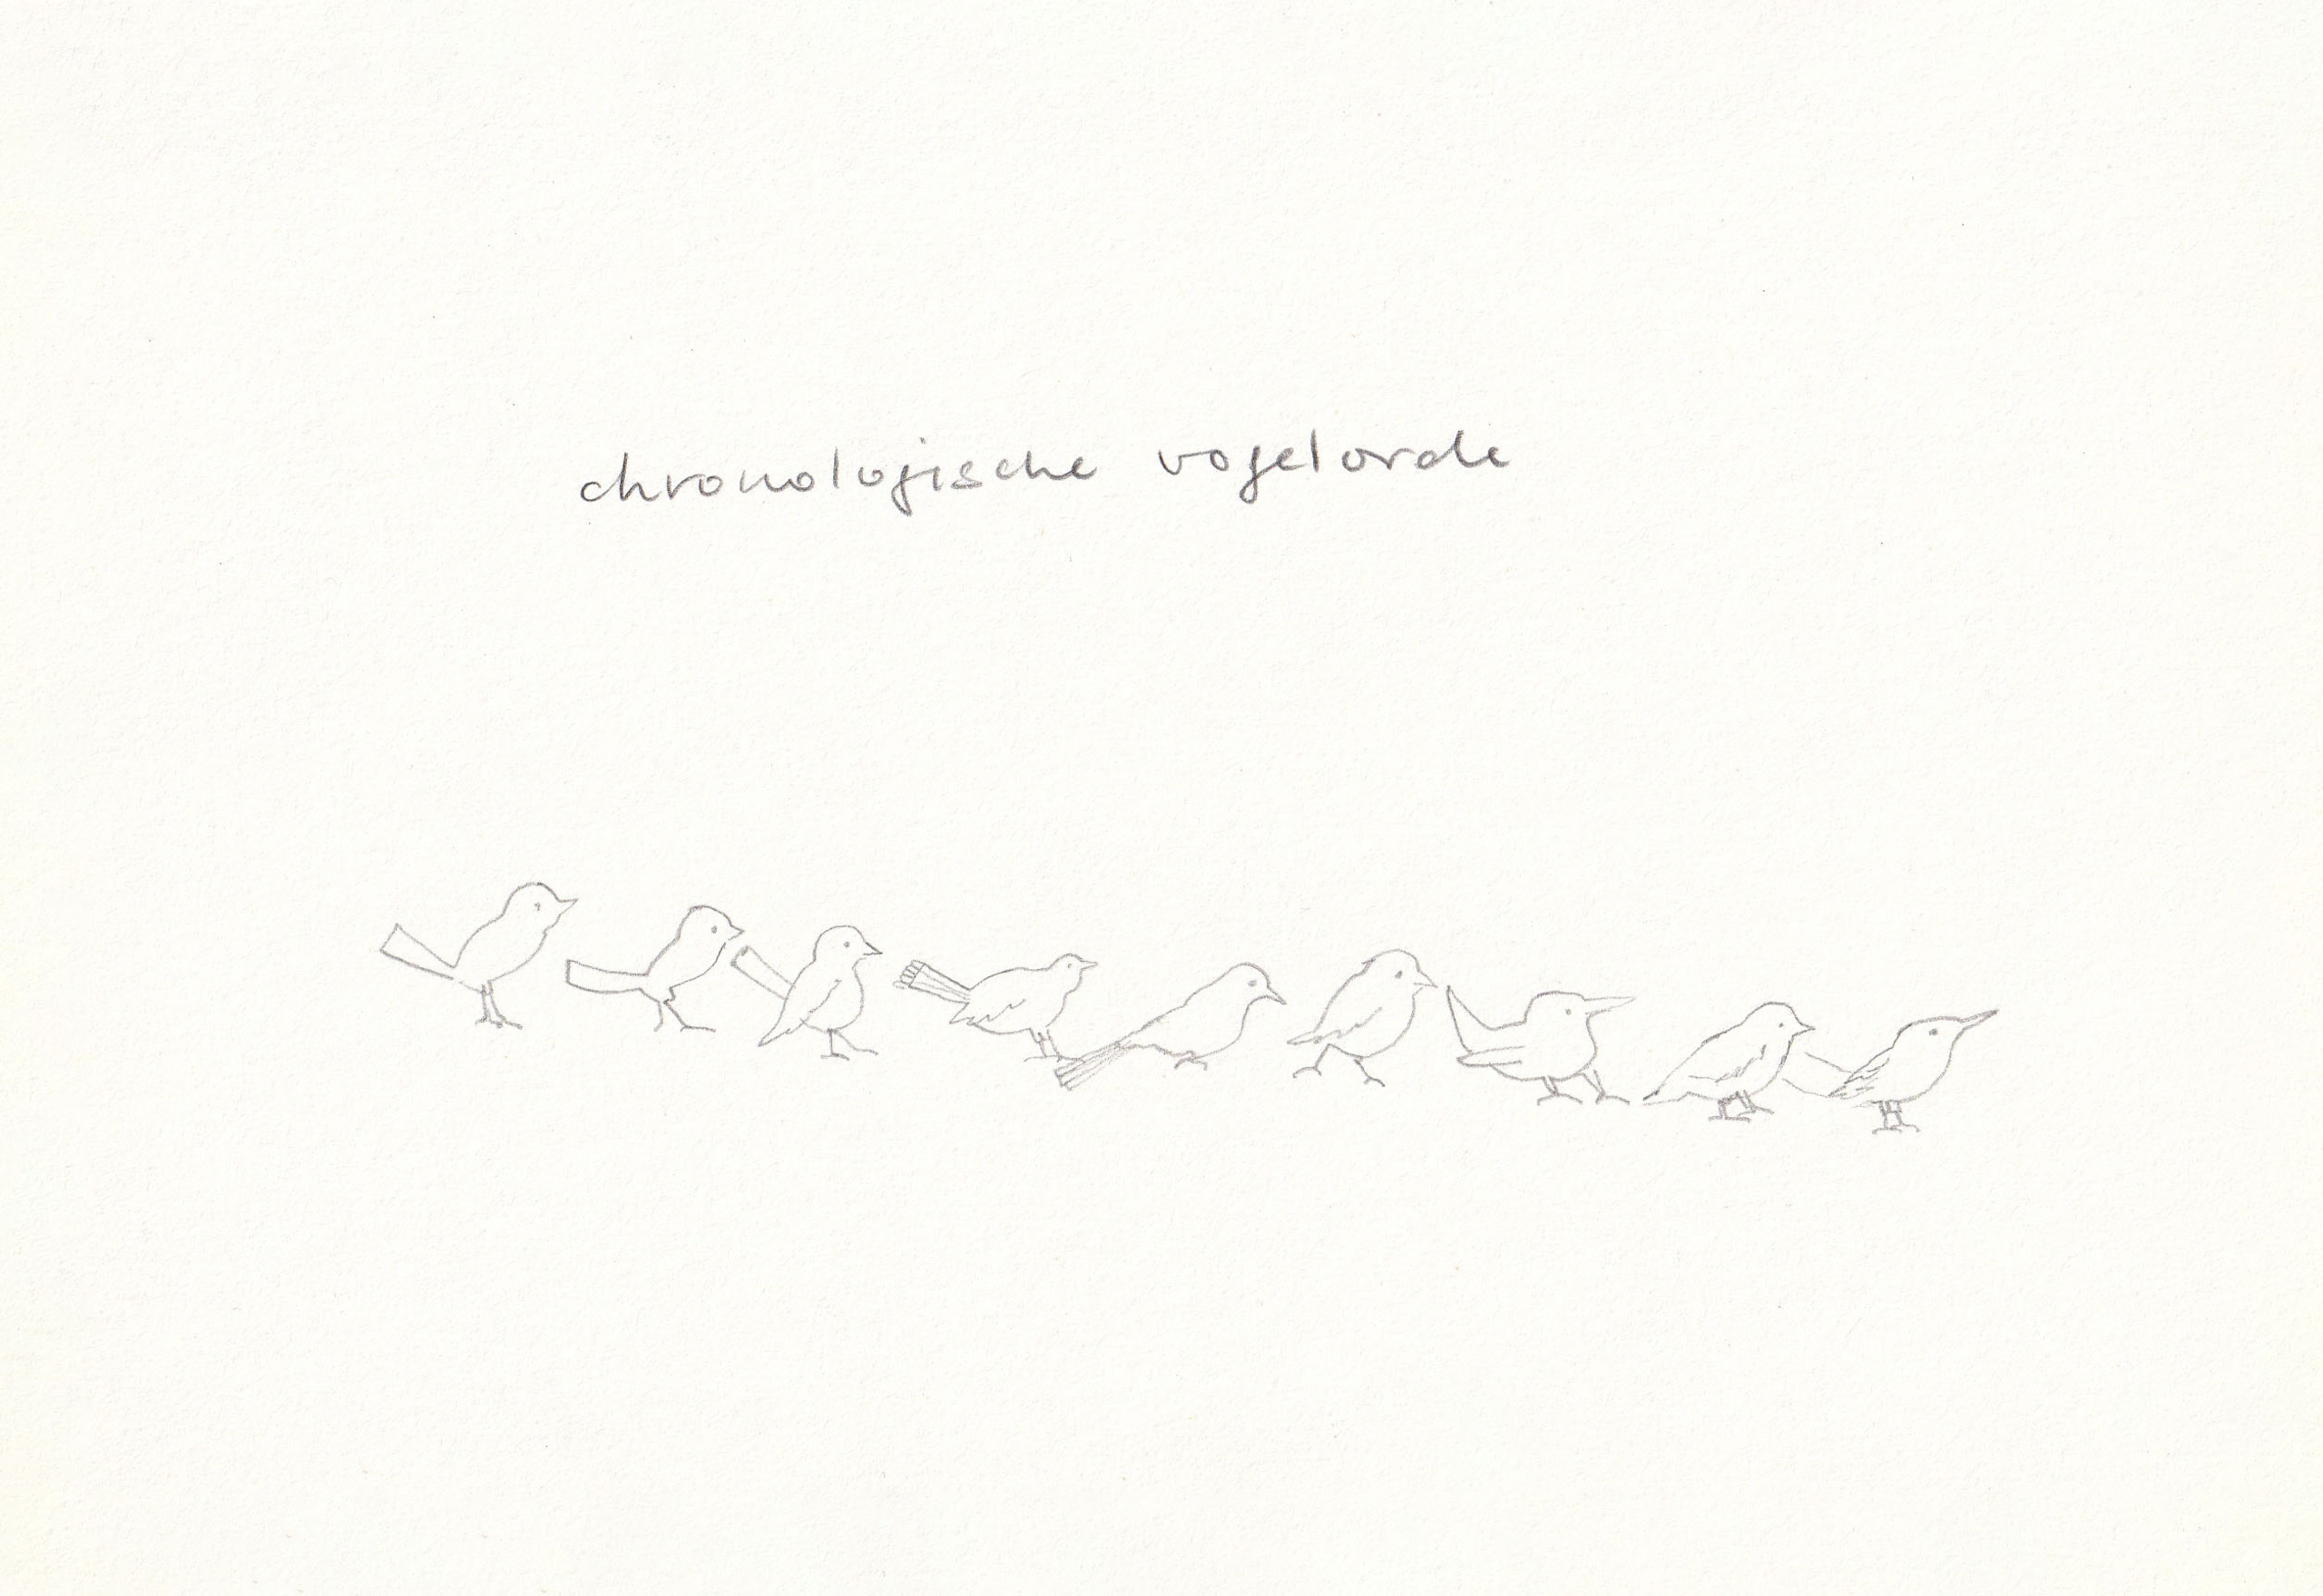 chronologische vogelorde